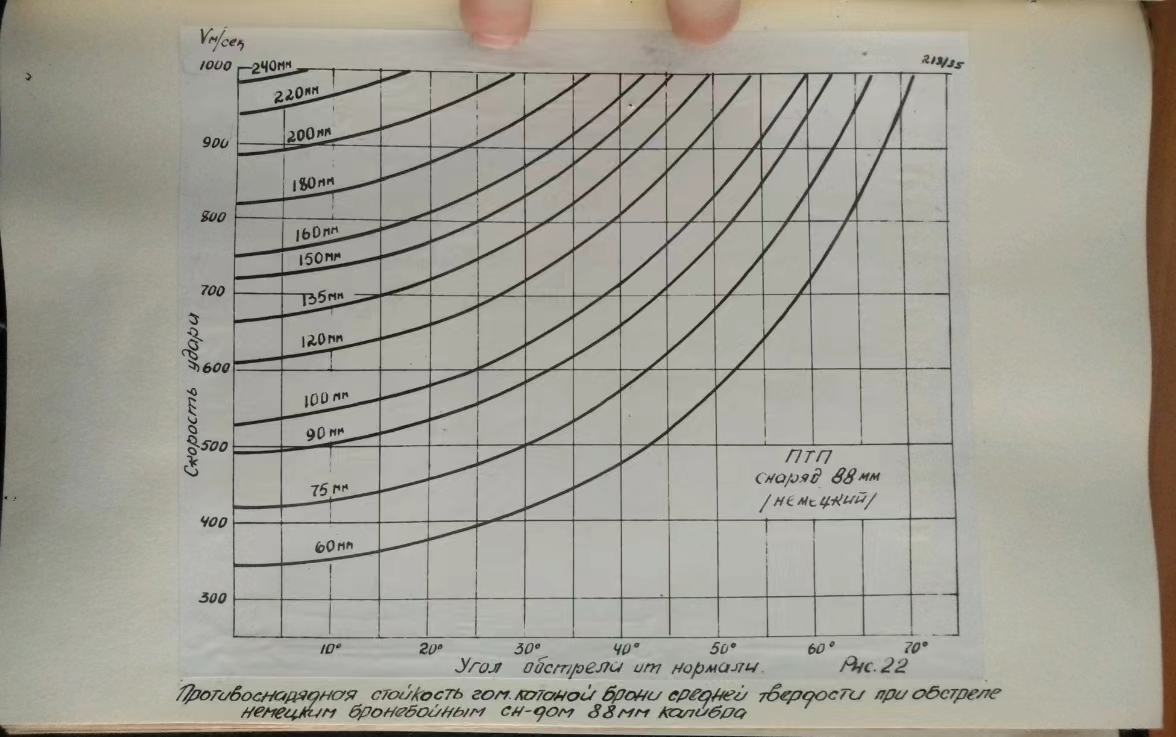 Vм/сек
213/35
1000
240мм
220мм
900
200мм
180мм
800
160мм
150мм
700
135мм
120мм
600
100мм
90мм
500
75мм
400
60мм
300
Скорость удара
ПТП
снаряд 88мм
/немецкий/
10° 20° 30° 40° 50° 60° 70°
Угол обстрела от нормали. Рис. 22
Противоснарядная стойкость гом. катаной брони средней твердости при обстреле
немецким бронебойным сн-дом 88мм калибра